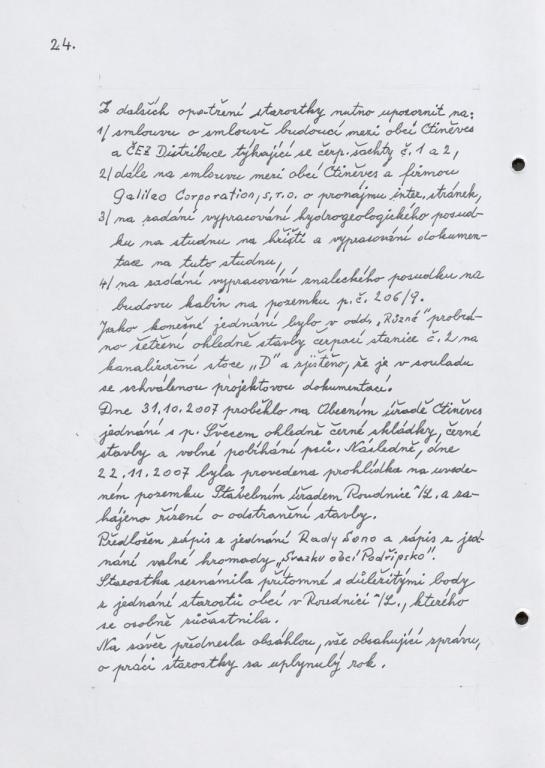 24.
Z dalších opatření starostky nutno upozornit na:
1/ smlouvu o smlouvě budoucí mezi obcí Ctiněves
a ČEZ Distribuce týkající se čerp. šachty č. 1 a 2,
2/ dále na smlouvu mezi obcí Ctiněves a firmou
Galileo Corporation, s.r.o. o pronájmu inter. stránek,
3/ na zadání vypracování hydrogeologického posud-
ku na studnu na hřišti a vypracování dokumen-
tace na tuto studnu,
4/ na zadání vypracování znaleckého posudku na
budovu kabin na pozemku p.č. 206/9.
Jako konečné jednání bylo v odd. „Různé" probrá-
no šetření ohledně stavby čerpací stanice č. 2 na
kanalizační stoce „D" a zjištěno, že je v souladu
se schválenou projektovou dokumentací.
Dne 31.10.2007 proběhlo na Obecním úřadě Ctiněves
jednání s p. Švecem ohledně černé skládky, černé
stavby a volné pobíhání psů. Následně, dne
22.11.2007 byla provedena prohlídka na uvede-
ném pozemku Stavebním úřadem Roudnice n/L. a za-
hájeno řízení o odstranění stavby.
Předložen zápis z jednání Rady Sono a zápis z jed-
nání valné hromady „Svazku obcí Podřipsko".
Starostka seznámila přítomné s důležitými body
z jednání starostů obcí v Roudnici n/L., kterého
se osobně zúčastnila.
Na závěr přednesla obsáhlou, vše obsahující zprávu,
o práci starostky za uplynulý rok.